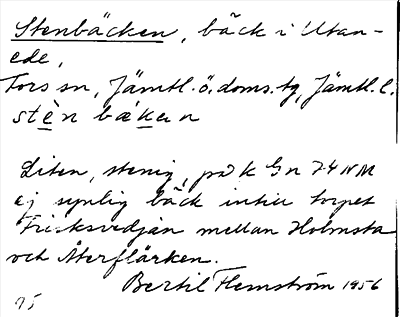 Stenbäcken, bäck i Utan-
ede,
Fors sn, Jämtl. ö. doms. tg, Jämtl. l.
stèn bäkan
Liten, stenig, på k Gn 74 NM
ej synlig bäck intill torpet
Fricksvedjan mellan Holmsta
och Återflärken.
Bertil Flemström 1956
75